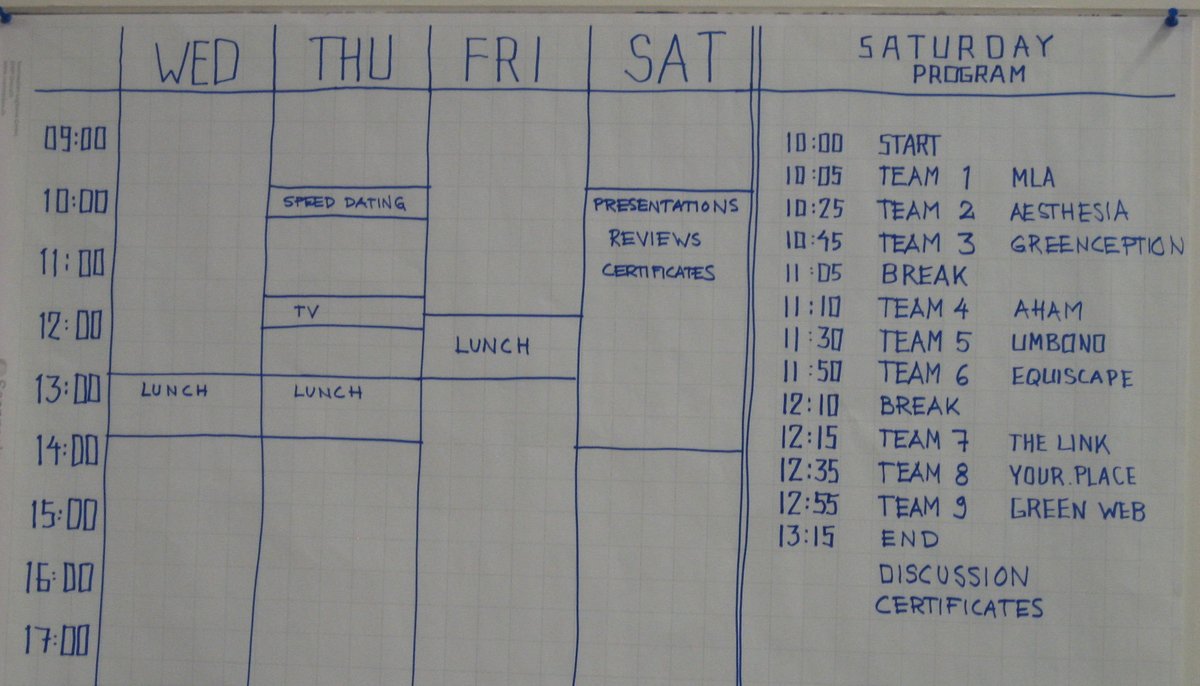 WED THU FRI SAT
09:00
10:00 SPEED DATING PRESENTATIONS
REVIEWS
11:00 CERTIFICATES
TV
12:00 LUNCH
13:00 LUNCH LUNCH
14:00
15:00
16:00
17:00
SATURDAY
PROGRAM
10:00 START
10:05 TEAM 1 MLA
10:25 TEAM 2 AESTHESIA
10:45 TEAM 3 GREENCEPTION
11:05 BREAK
11:10 TEAM 4 AHAM
11:30 TEAM 5 UMBONO
11:50 TEAM 6 EQUISCAPE
12:10 BREAK
12:15 TEAM 7 THE LINK
12:35 TEAM 8 YOUR.PLACE
12:55 TEAM 9 GREEN WEB
13:15 END
DISCUSSION
CERTIFICATES